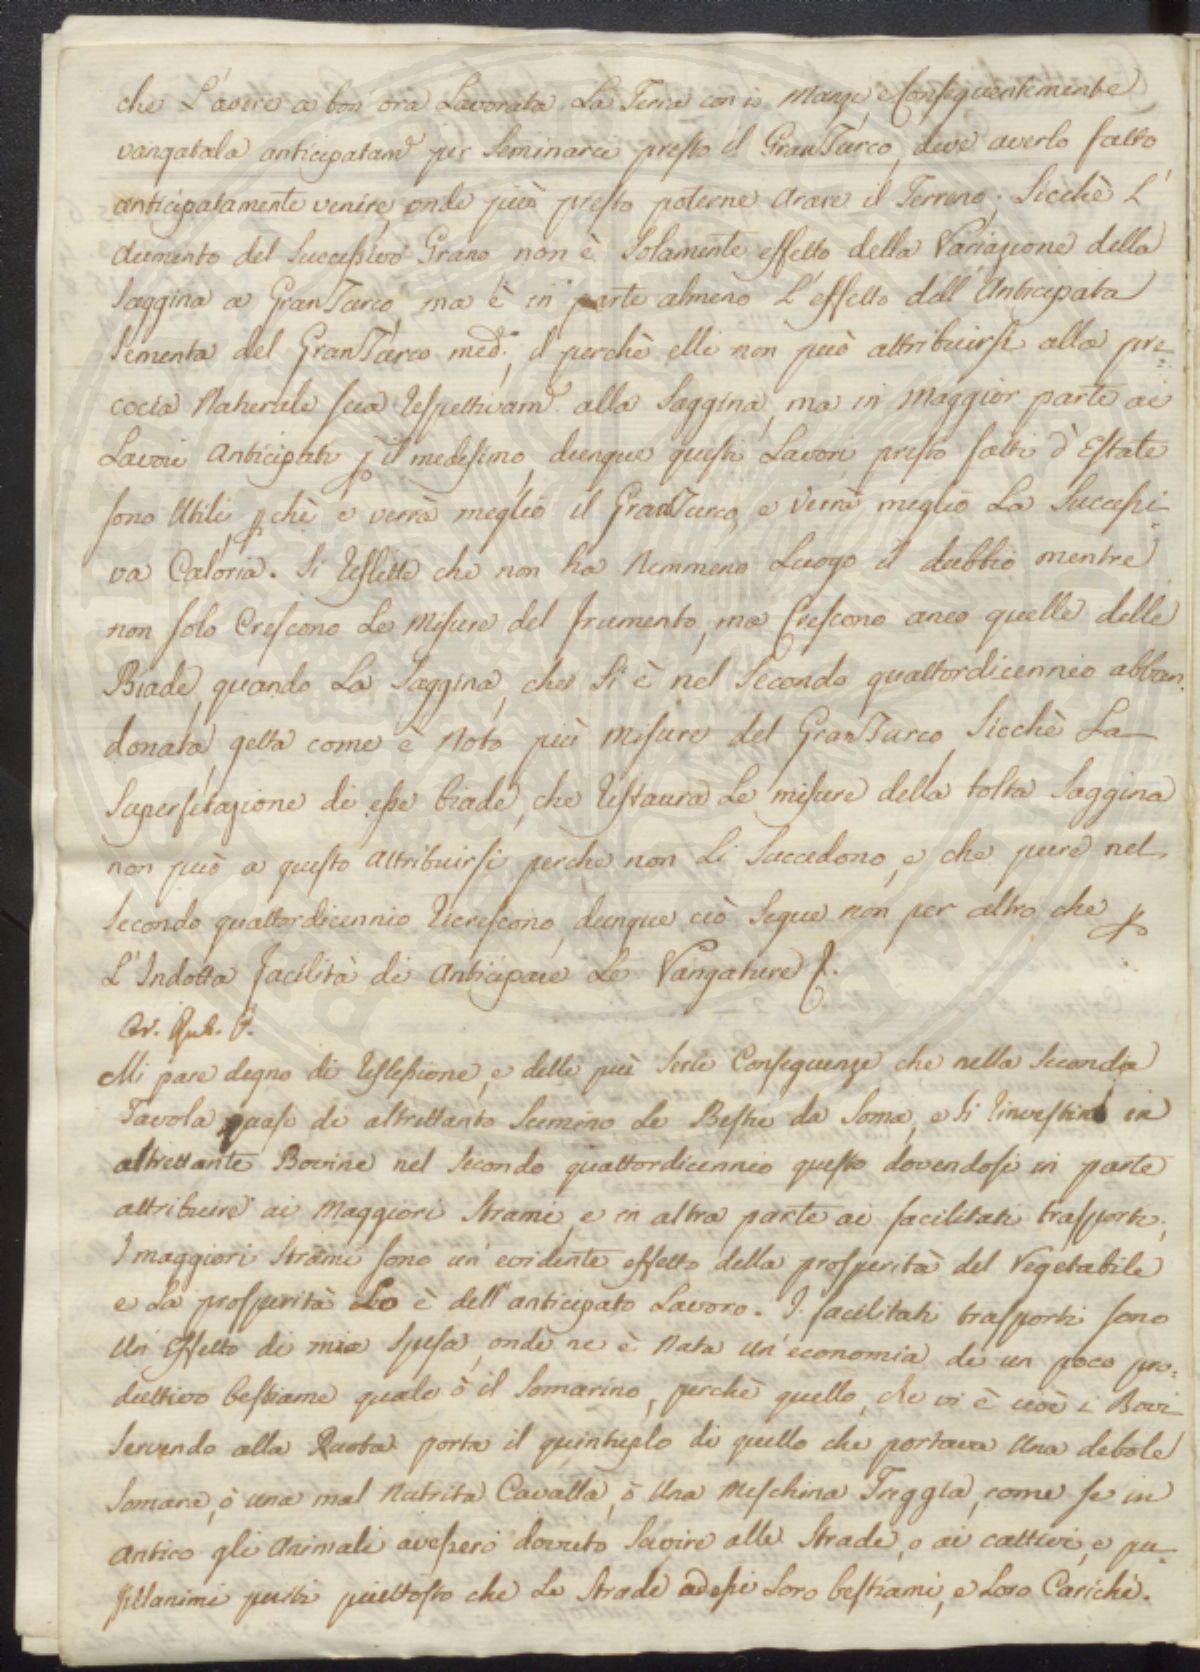 che L'avere a bon ora Lavorata La Terra con i Manzi, e Conseguentemente
vangatala anticipatam.e per Seminarci presto il GranTurco, deve averlo fatto
anticipatamente venire, onde più presto poterne Arare il Terreno; Sicchè L'
Aumento del Successivo Grano non è Solamente effetto della Variazione della
Saggina a GranTurco, ma è in parte almeno L'effetto dell'Anticipata
Sementa del GranTurco med.o; il perchè elli non può attribuirsi alla pre=
cocia Naturale sua respettivam.e alla Saggina, ma in Maggior parte ai
Lavori Anticipati p il medesimo, dunque questi Lavori presto fatti d'Estate
sono Utili, pchè e verrà meglio il GranTurco, e verrà meglio La Successi=
va Caloria. Si reflette che non ha Nemmeno Luogo il dubbio mentre
non solo Crescono Le Misure del frumento, ma Crescono anco quelle delle
Biade, quando La Saggina, che Si è nel Secondo quattordicennio abban=
donata, getta come è Noto più Misure del GranTurco, Sicchè La
Superfetazione di esse biade, che restaura Le misure della tolta Saggina
non può a questo Attribuirsi perche non Li Succedono, e che pure nel
Secondo quattordicennio ricrescono, dunque ciò Segue non per altro che p
L'Indotta facilità di Anticipare Le Vangature
Mi pare degno di reflessione, e delle più Serie Conseguenze che nella Seconda
Tavola quasi di altrettanto Scemino Le Bestie da Soma, e Si rinvestino in
altrettante Bovine nel Secondo quattordicennio questo dovendosi in parte
attribuire ai Maggiori Strami, e in altra parte ai facilitati trasporti;
I maggiori Strami sono un'evidente effetto della prosperità del Vegetabile
e La prosperità Lo è dell'anticipato Lavoro. I facilitati trasporti sono
Un'Effetto di mia Spesa, onde ne è Nata Un'economia di un poco pro=
duttivo bestiame quale è il Somarino, perchè quello, che vi è cioè i Bovi
Servendo alla Ruota porta il quintuplo di quello che portava Una debole
Somara, ò una mal Nutrita Cavalla, ò Una Meschina Treggia, come se in
Antico gli Animali avessero dovuto Servire alle Strade, e ai cattivi, e pu=
sillanimi periti piuttosto che Le Strade ad essi Loro bestiami, e Loro Cariche.